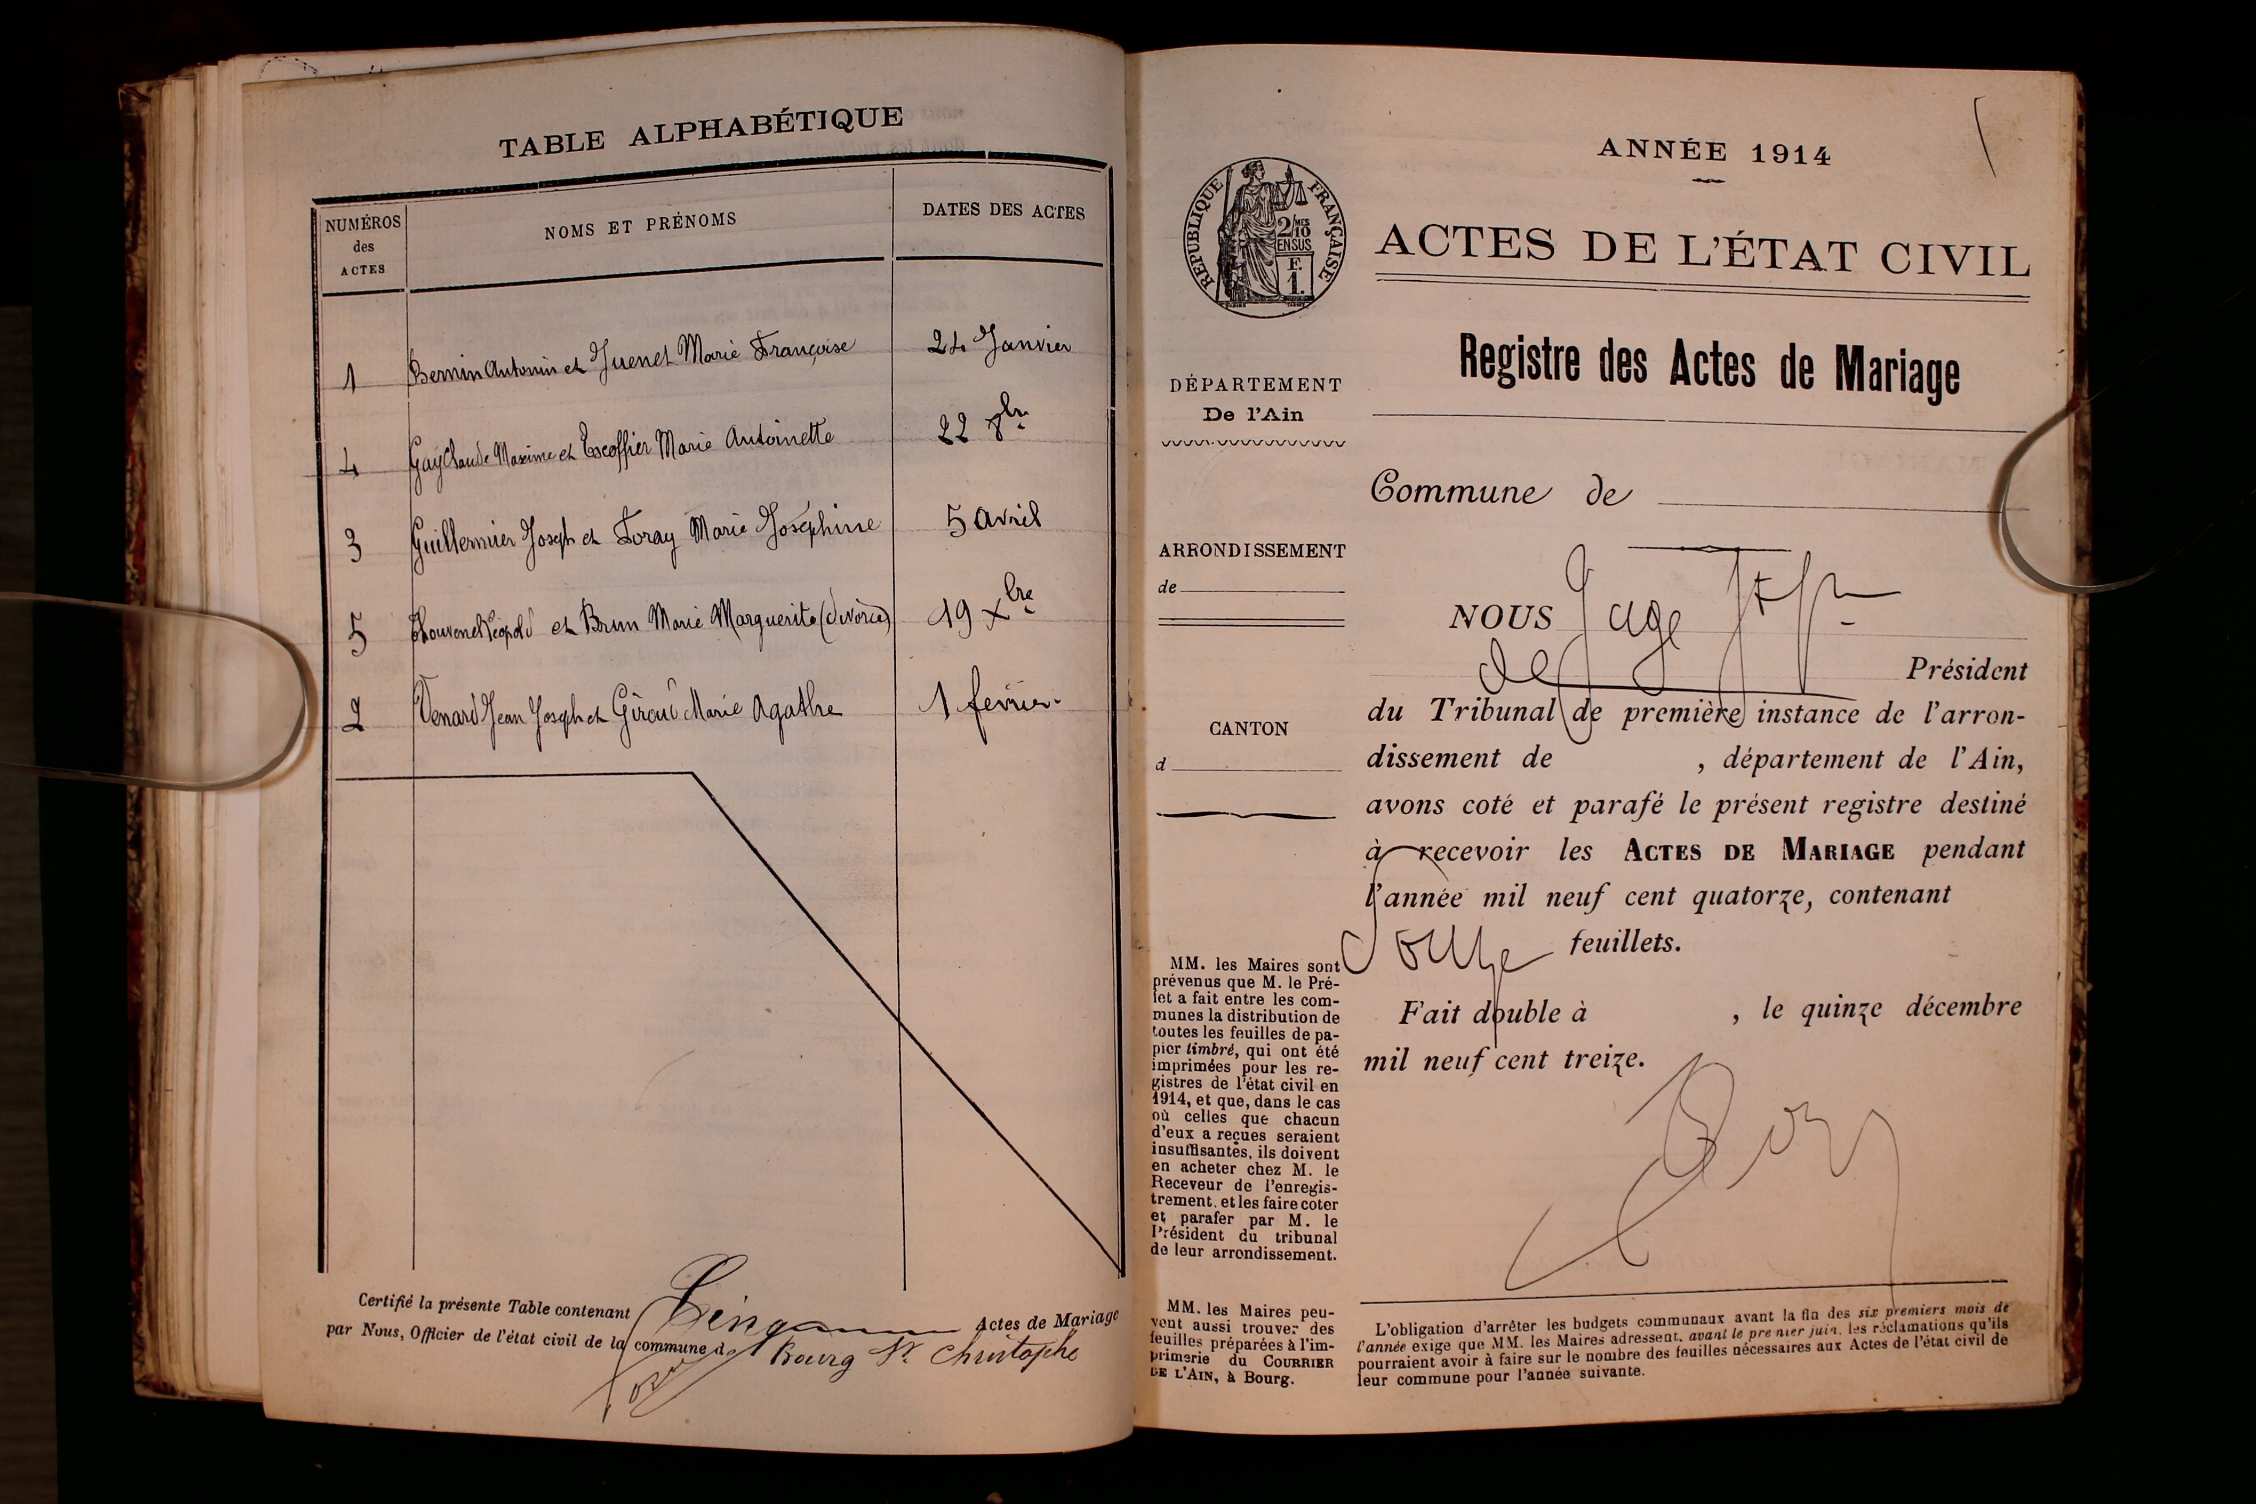 TABLE ALPHABÉTIQUE
NUMÉROS des ACTES
NOMS ET PRÉNOMS
DATES DES ACTES
1 Bernin Antonin et Juenet Marie Françoise 24 Janvier
4 Gay Claude Maxime et Escoffier Marie Antoinette 22 8bre
3 Guillermier Joseph et Foray Marie Joséphine 5 avril
5 Thouvenel Léopold et Brun Marie Marguerite (divorce) 19 Xbre
2 Venard Jean Joseph et Giroud Marie Agathe 1 fevrier
Certifié la présente Table contenant Cinq Actes de Mariage
par Nous, Officier de l'état civil de la commune de Bourg St Christophe
ANNÉE 1914
RÉPUBLIQUE FRANÇAISE
2/10 MES
EN SUS
F.
1.
ACTES DE L'ÉTAT CIVIL
Registre des Actes de Mariage
DÉPARTEMENT
De l'Ain
Commune de
ARRONDISSEMENT
de
CANTON
d
NOUS Juge
de Président
du Tribunal de première instance de l'arron-
dissement de , département de l'Ain,
avons coté et parafé le présent registre destiné
à recevoir les ACTES DE MARIAGE pendant
l'année mil neuf cent quatorze, contenant
feuillets.
Fait double à , le quinze décembre
mil neuf cent treize.
MM. les Maires sont
prévenus que M. le Pré-
fet a fait entre les com-
munes la distribution de
toutes les feuilles de pa-
pier timbré, qui ont été
imprimées pour les re-
gistres de l'état civil en
1914, et que, dans le cas
où celles que chacun
d'eux a reçues seraient
insuffisantes, ils doivent
en acheter chez M. le
Receveur de l'enregis-
trement, et les faire coter
et parafer par M. le
Président du tribunal
de leur arrondissement.
MM. les Maires peu-
vent aussi trouver des
feuilles préparées à l'im-
primerie du COURRIER
DE L'AIN, à Bourg.
L'obligation d'arrêter les budgets communaux avant la fin des six premiers mois de
l'année exige que MM. les Maires adressent, avant le premier juin, les réclamations qu'ils
pourraient avoir à faire sur le nombre des feuilles nécessaires aux Actes de l'état civil de
leur commune pour l'année suivante.